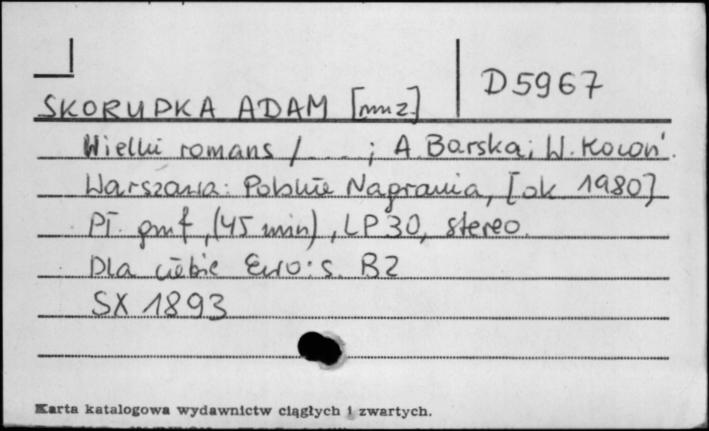 D5967
SKORUPKA ADAM [muz.]
Wielki romans / ....; A. Barska; W. Kocoń.
Warszawa: Polskie Nagrania, [ok 1980]
Pł. gmf, (45 min), LP 30, stereo.
Dla ciebie Ewo: s. B2
SX 1893
Karta katalogowa wydawnictw ciągłych i zwartych.